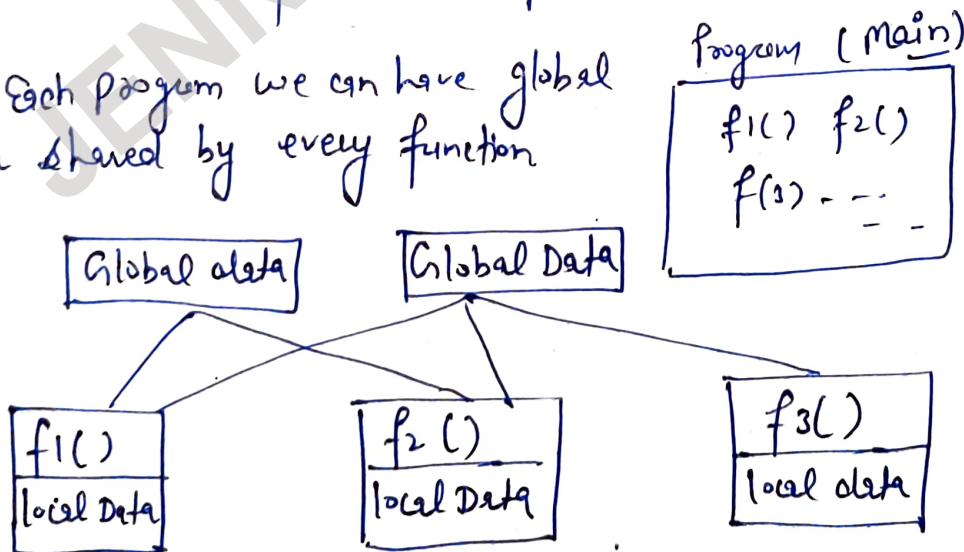 Program (Main)
Each program we can have global
shared by every function
f1() f2()
f(3) - - - -
Global data
Global Data
f1()
local Data
f2 ()
local Data
f3()
local data